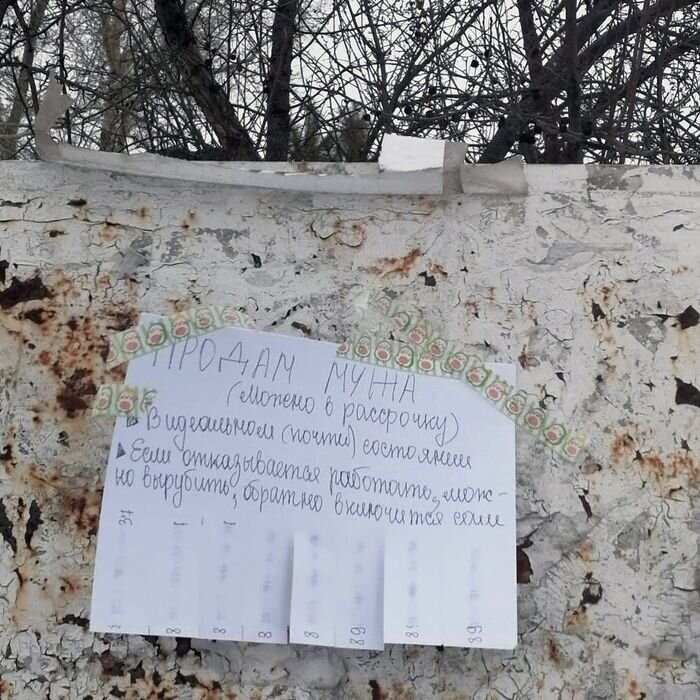 ПРОДАМ МУЖА
(Можно в рассрочку)
В идеальном (почти) состоянии
Если отказывается работать, мож-
но вырубить, обратно включится сам